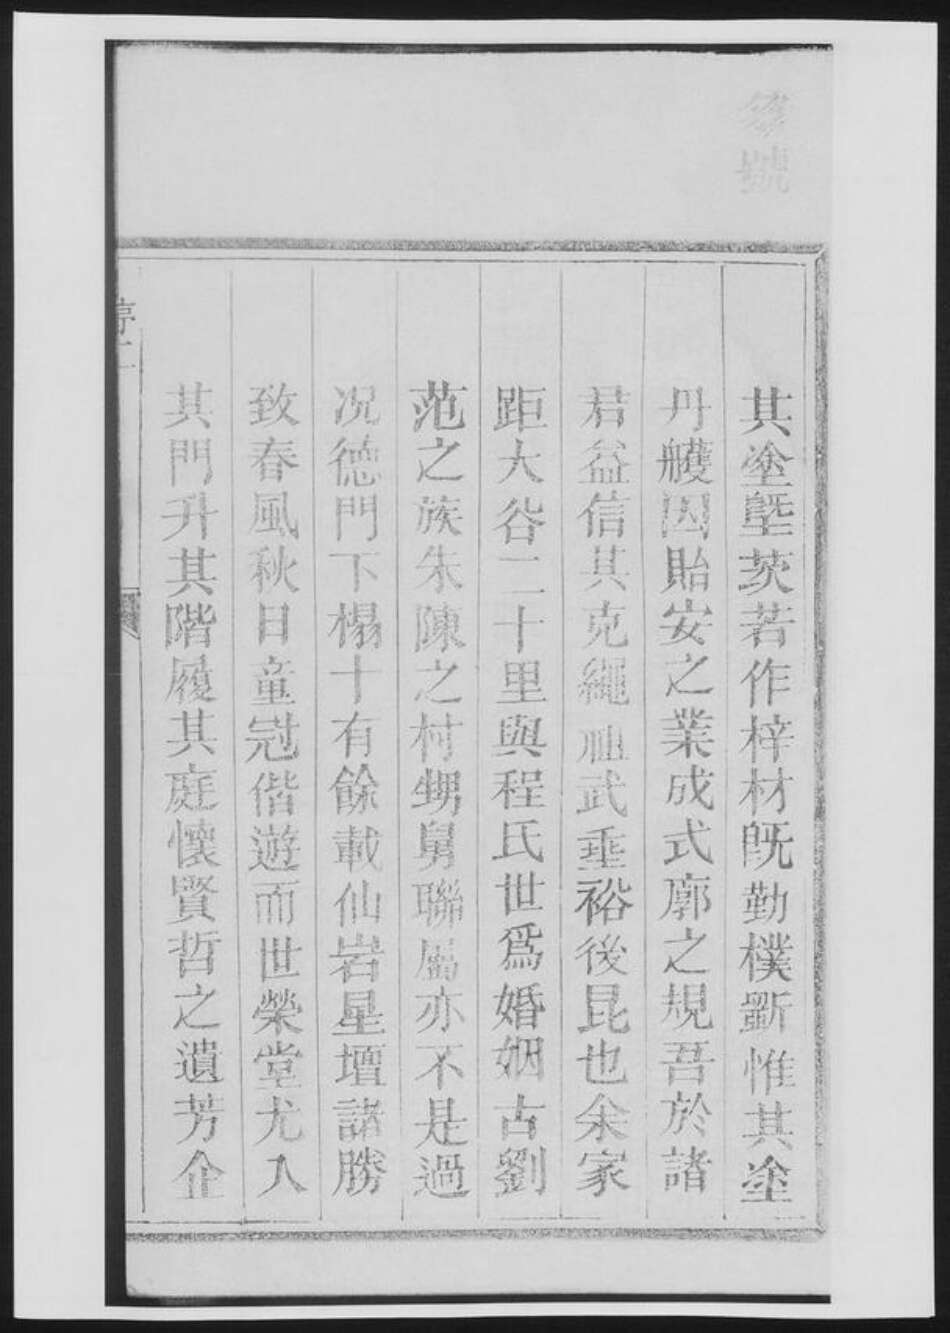 其塗塈茨若作梓材既勤樸斲惟其塗
丹艧因貽安之業成式廓之規吾於諸
君益信其克繩祖武垂裕後昆也余家
距大谷二十里與程氏世爲婚姻古劉
范之族朱陳之村甥舅聯屬亦不是過
况德門下榻十有餘載仙岩星壇諸勝
致春風秋日童冠偕遊而世榮堂尤入
其門升其階履其庭懷賢哲之遺芳企